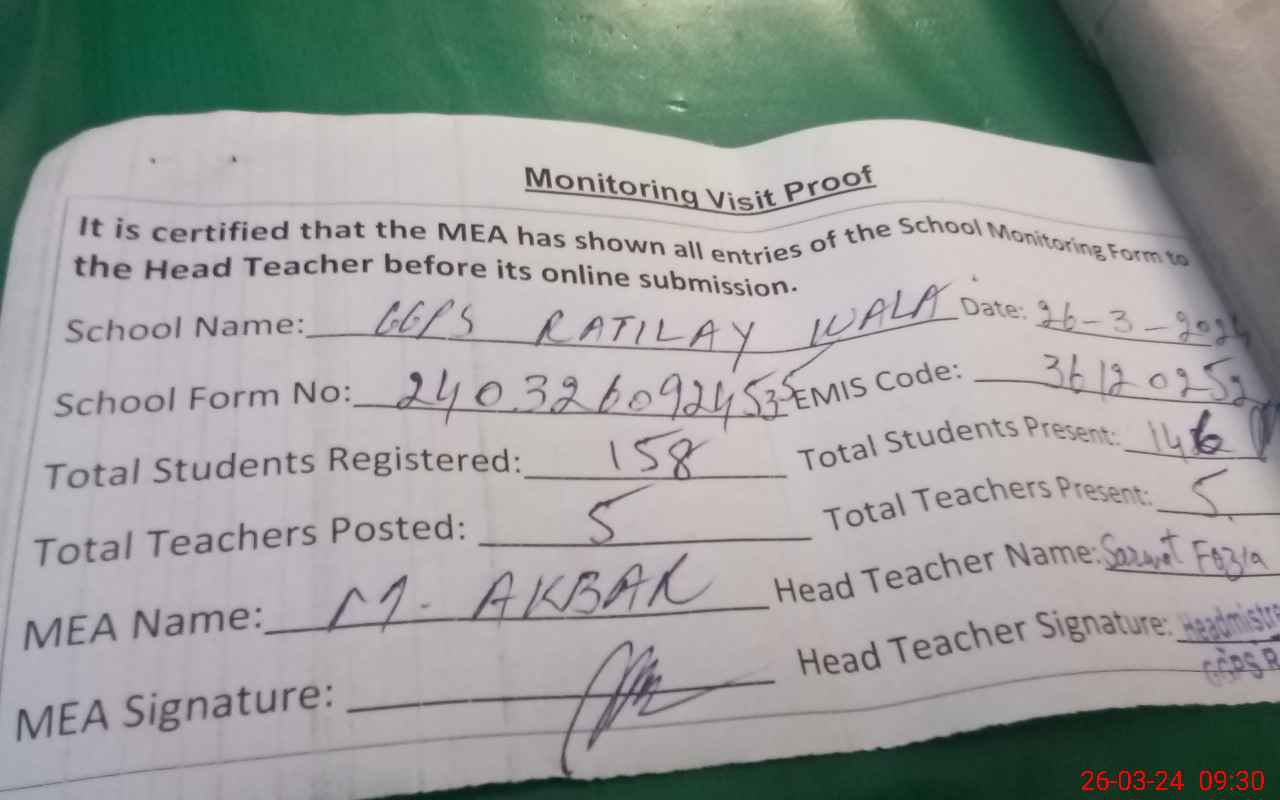 Monitoring Visit Proof
It is certified that the MEA has shown all entries of the School Monitoring Form to
the Head Teacher before its online submission.
School Name: GGPS RATILAY WALA Date: 26-3-2024
School Form No: 240326092453 EMIS Code: 36120252
Total Students Registered: 158 Total Students Present: 146
Total Teachers Posted: 5 Total Teachers Present: 5
MEA Name: M. AKBAR Head Teacher Name: Sarwat Fozia
MEA Signature: Head Teacher Signature: Headmistre
GGPS R
26-03-24 09:30